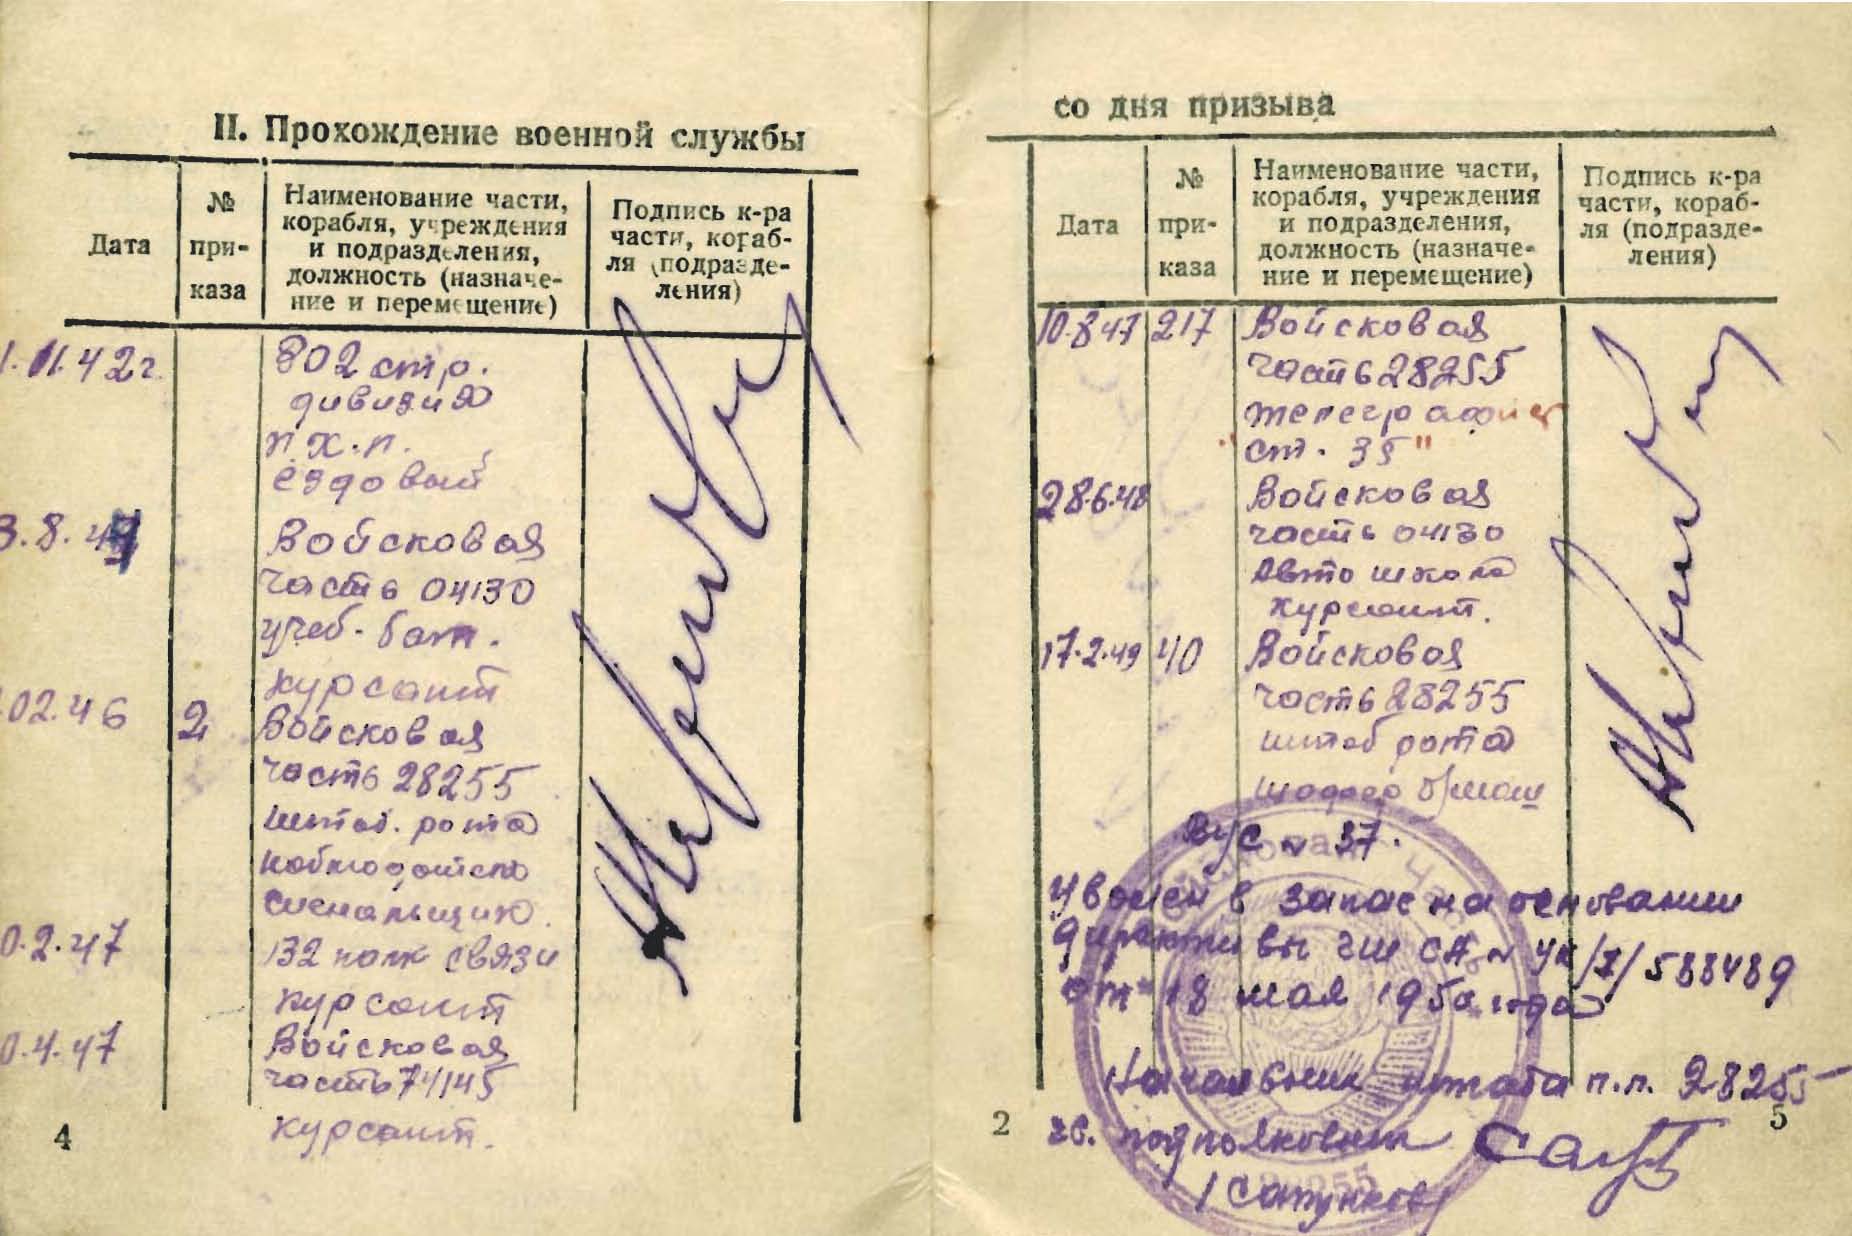 II. Прохождение военной службы
Дата
№ при-каза
Наименование части,
корабля, учреждения
и подразделения,
должность (назначе-
ние и перемещение)
Подпись к-ра
части, кораб-
ля (подразде-
ления)
1.11.42г.
802 стр.
дивизия
п.х.п.
ездовый
3.8.44
Войсковая
часть 04130
учеб. бат.
курсант
02.46 2
Войсковая
часть 28255
штаб. рота
наблюдатель
сигнальщик
0.2.47
132 полк связи
курсант
0.4.47
Войсковая
часть 74145
курсант.
4
со дня призыва
Дата
№ при-каза
Наименование части,
корабля, учреждения
и подразделения,
должность (назначе-
ние и перемещение)
Подпись к-ра
части, кораб-
ля (подразде-
ления)
10.8.47 217 Войсковая
часть 28255
телеграфист
"ст. 35"
28.6.48 Войсковая
часть 04130
авто школа
курсант.
17.2.49 40 Войсковая
часть 28255
штаб рота
шофер
вус № 37.
Уволен в запас на основании
директивы ГШ СА № /1/588489
от 18 мая 1950 года
Начальник штаба п.п. 28255
гв. подполковник
/Сатунков/
2
5